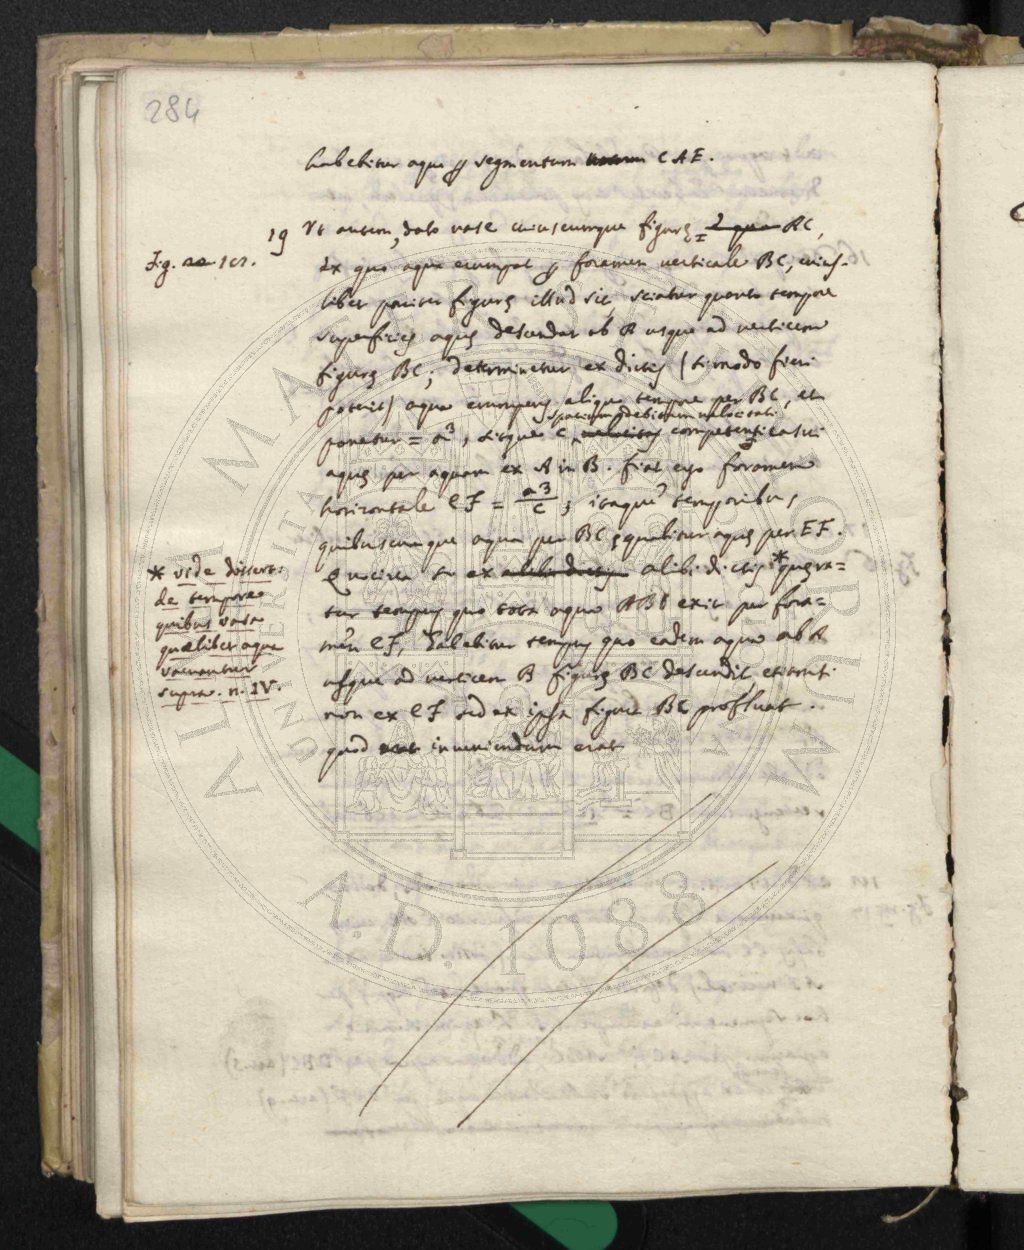 284
habebitur aqua p segmentum CAE.
19 Ut autem, dato vase cuiuscumque figurę AC,
Fig. 101.
ex quo aqua erumpat p foramen verticale BC, cuius-
libet pariter figurę illud sit, sciatur quanto tempore
superficies aquę descendat ab A usque ad verticem
figurę BC; determinetur ex dictis (si modo fieri
poterit) aqua erumpens aliquo tempore per BC, et
spatium debitum velocitati
ponatur = a³, sitque c competens casui
aquę per aquam ex A in B. fiat ergo foramen
horizontale EF = a3/c; itaque temporibus
quibuscumque aqua per BC ęquabitur aquę per EF.
Quocirca si ex alibi dictis * quęra=
tur tempus quo tota aqua ABC exit per fora=
men EF, habebitur tempus quo eadem aqua ab A
usque ad verticem B figurę BC descendit, existenti
non ex EF sed ex ipsa figura BC profluat.
quod inveniendum erat
* vide dissert:
de tempore
quibus vasa
quælibet aqua
vacuantur
supra. n. IV.
ALMA MATER STUDIORUM
UNIVERSITAS
A.D. 1088